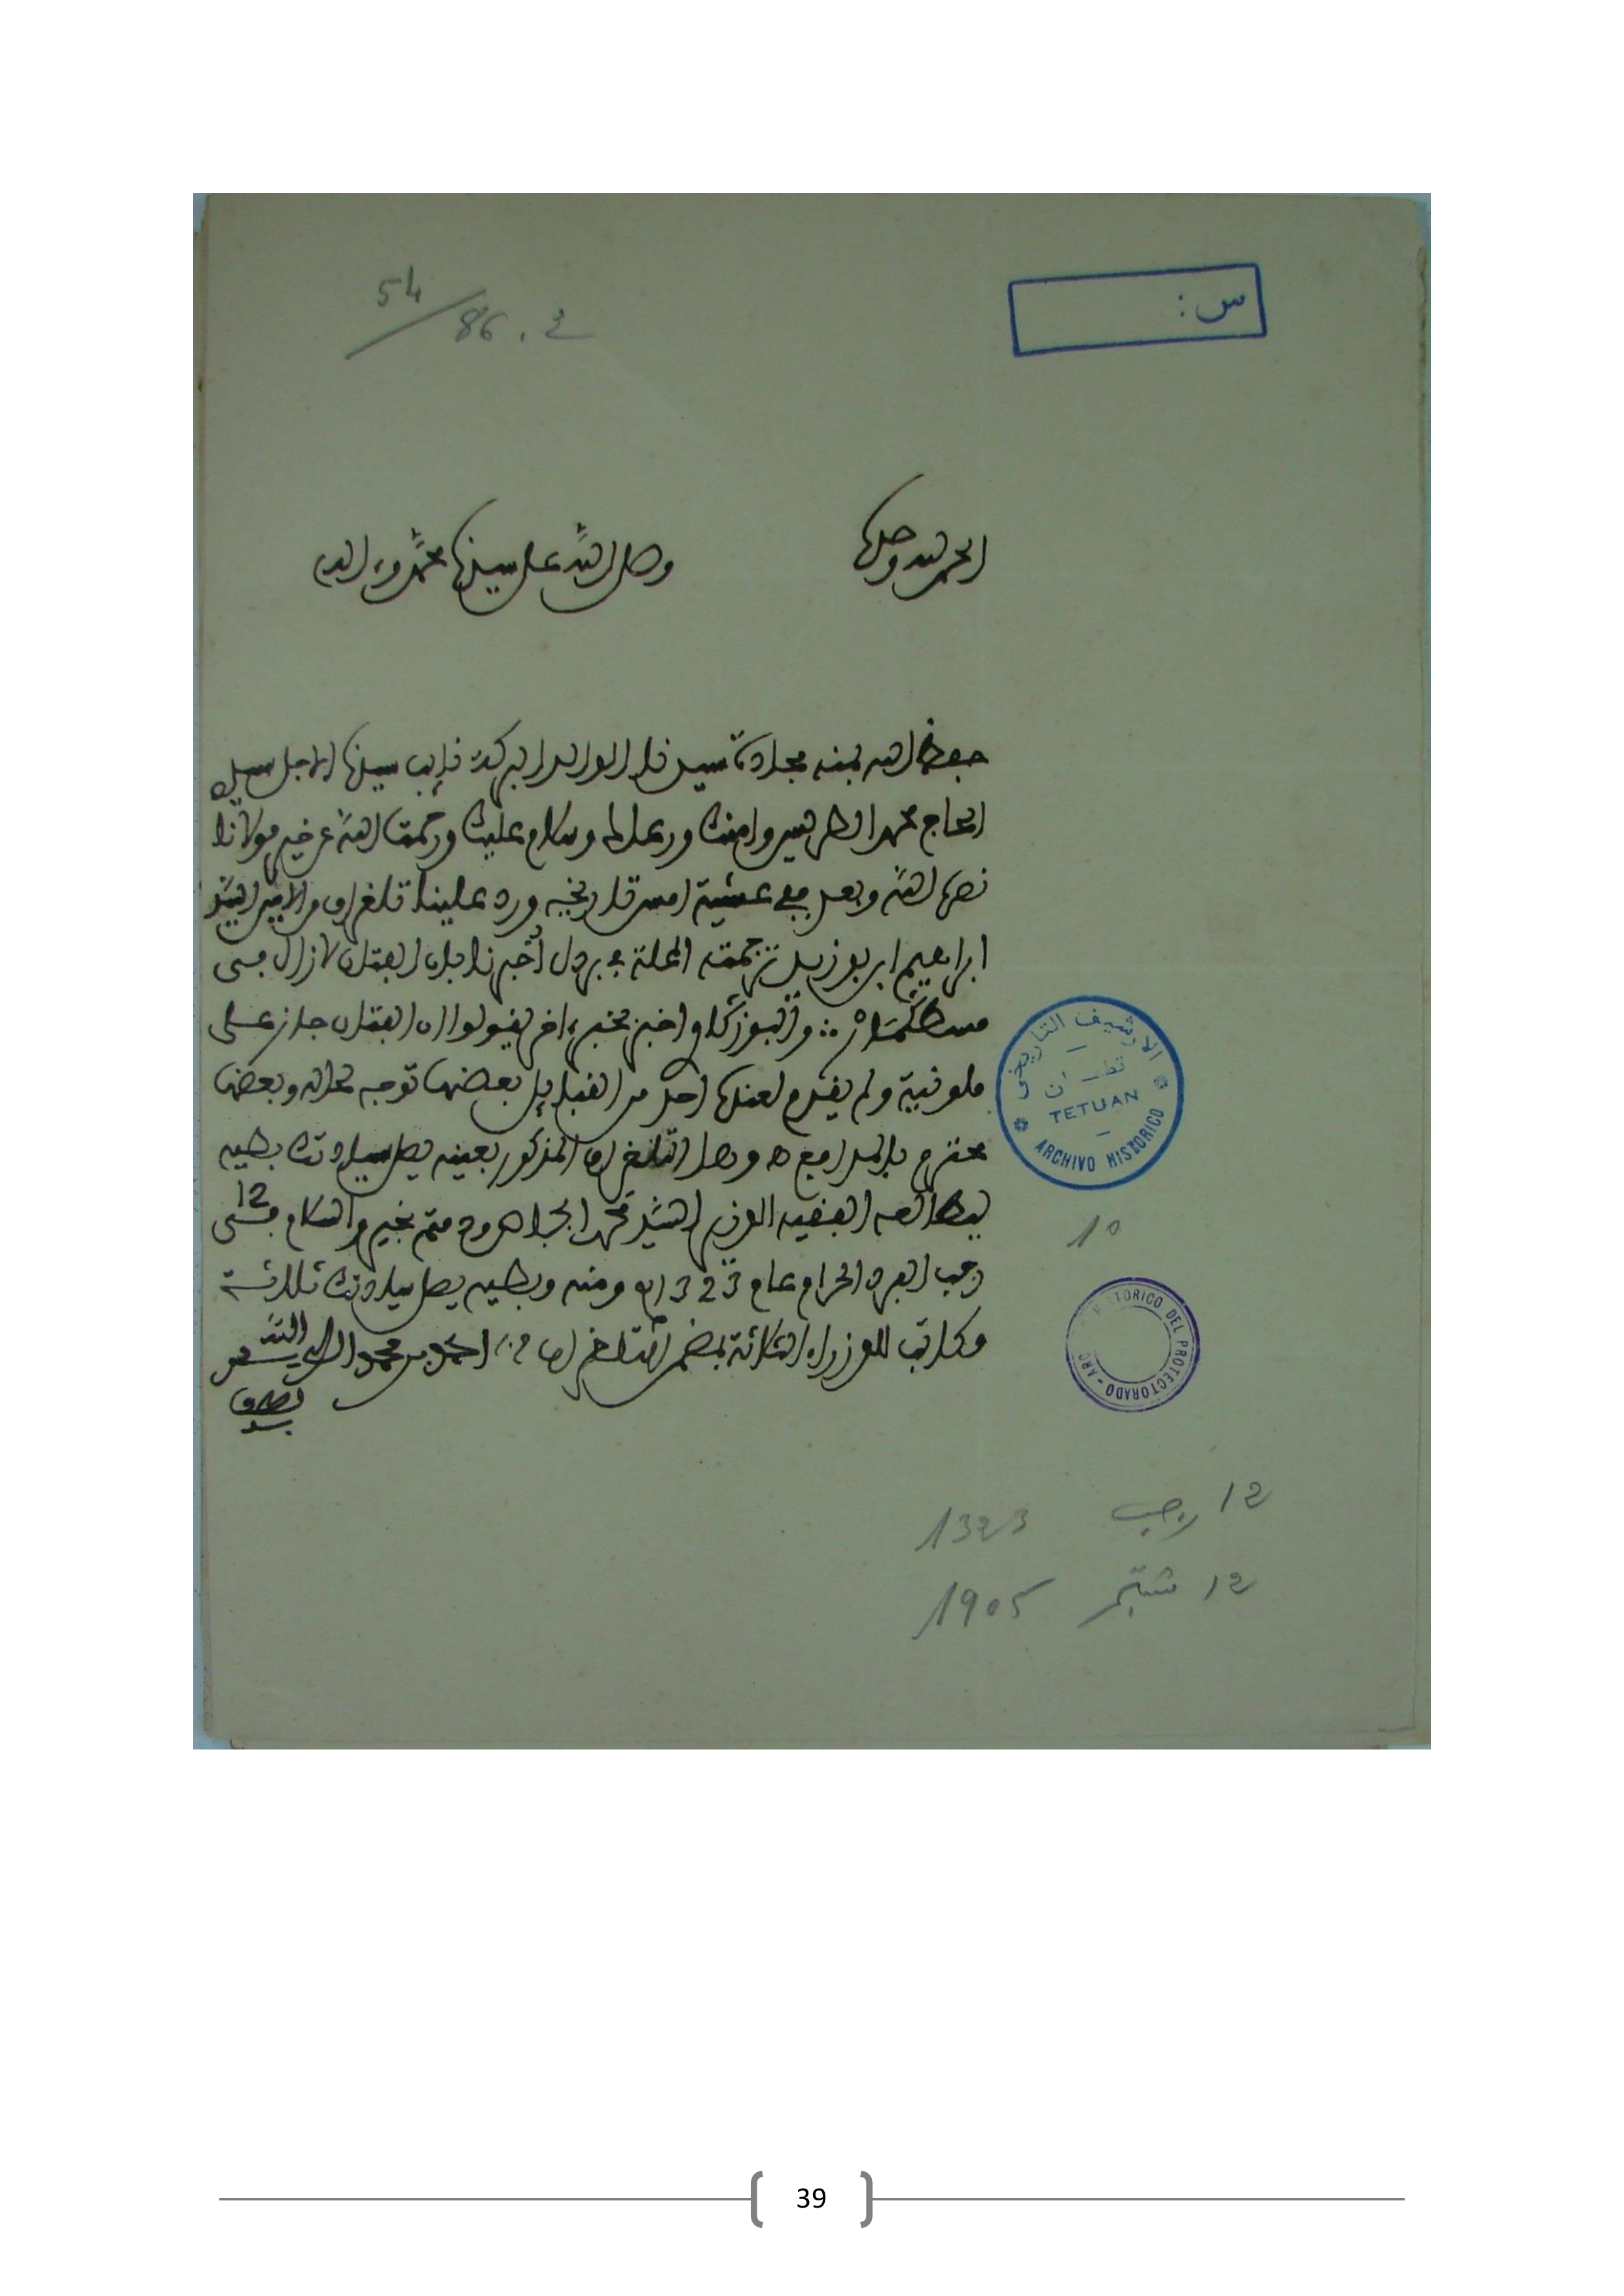 54/86.2
س:
الحمد لله وحده
وصلى الله على سيدنا محمد وءاله
حفظ الله بمنه سيدنا الوالد البركة نايب سيدنا الاجل سيدي
الحاج محمد الطريس وامنك ورعاك وسلام عليك ورحمت الله عن خير مولانا
نصره الله وبعد ففي عشية امس تاريخه ورد علينا تلغراف من الامير السيد
ابراهيم ابن بوزيد ترجمته المحلة أخبرنا بان الفتان لازال في
مسطكمار واخبر بخبر ءاخر يقولوا ان الفتان جاز على
ملوية ولم يقدم لعنده احد من القبايل بعضها توجه لمحاله وبعضها
محترم بالمدافع ه وصل التلغراف المذكور بعينه يصل سيادتك بطيه
ليطالعه الفقيه الوزير السيد محمد الجباص ودمتم بخير والسلام في 12
رجب الفرد الحرام عام 1323 ومنه وبطيه يصل سيادتك ثلاثة
مكاتب للوزراء الثلاثة بمضمن التلغراف احمد بن محمد
الارشيف التاريخي
تطوان
TETUAN
ARCHIVO HISTORICO
10
HISTORICO DEL PROTECTORADO - ARC
12 رجب 1323
12 شتنبر 1905
39